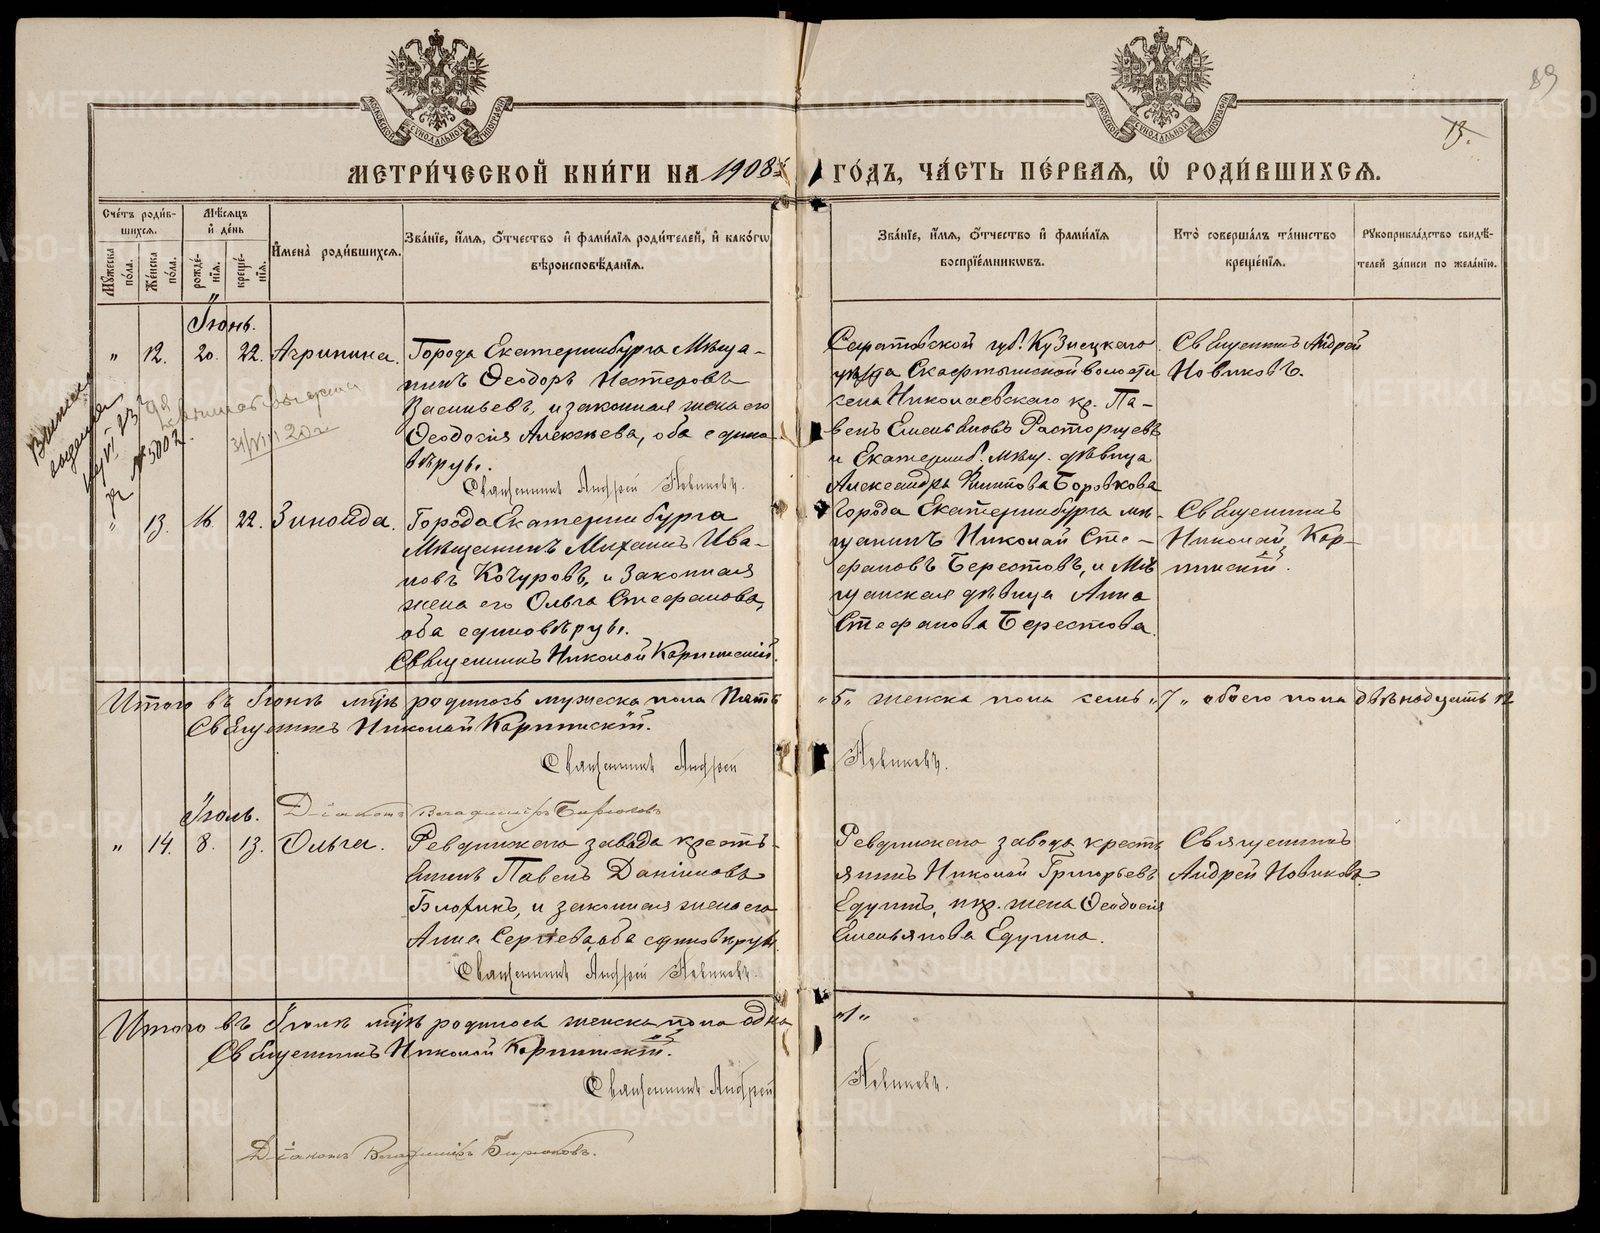 89
13.
МОСКОВСКОЙ СѴНОДАЛЬНОЙ ТИПОГРАФІИ
МОСКОВСКОЙ СѴНОДАЛЬНОЙ ТИПОГРАФІИ
МЕТРИ́ЧЕСКОЙ КНИ́ГИ НА 1908й ГО́ДЪ, ЧА́СТЬ ПЕ́РВАЯ, Ѿ РОДИ́ВШИХСЯ.
Сче́тъ роди́вшихся.
Мужеска по́ла.
Же́нска по́ла.
Мѣ́сяцъ и҆ де́нь
рожде́нїя.
креще́нїя.
И҆мена̀ роди́вшихся.
Зва́нїе, и҆́мя, ѻ҆́тчество и҆ фами́лїя роди́телей, и҆ како́гѡ
вѣроисповѣ́данїя.
Зва́нїе, и҆́мя, ѻ҆́тчество и҆ фами́лїя
воспрїе́мникѡвъ.
Кто̀ соверша́лъ та́инство
креще́нїя.
Рꙋкоприкла́дство свидѣ́-
телей за́писи по жела́нїю.
Іюнь.
" 12. 20. 22. Агрипина.
Города Екатеринбурга Мѣща-
нинъ Ѳеодоръ Нестеровъ
Васильевъ, и законная жена его
Ѳеодосія Алексѣева, оба едино-
вѣрцы.
Священникъ Андрей Новиковъ.
Саратовской губ. Кузнецкаго
уѣзда волости
села Николаевскаго кр. Па-
велъ Емельяновъ Расторгуевъ
и Екатеринб. мѣщ. дѣвица
Александра Филипова Боровкова
Священникъ Андрей
Новиковъ.
Выписка
выдана
№ 5002
31/VIII 20 г
" 13. 16. 22. Зинаида.
Города Екатеринбурга
Мѣщанинъ Михаилъ Ива-
новъ Кочуровъ, и Законная
жена его Ольга Стефанова,
оба единовѣрцы.
Священникъ Николай Карпинскій.
Города Екатеринбурга мѣ-
щанинъ Николай Сте-
фановъ Берестовъ, и Мѣ
щанская дѣвица Анна
Стефанова Берестова.
Священникъ
Николай Кар-
пинскій.
Итого въ Іюнѣ мцѣ родилось мужеска пола пять "5" женска пола семь "7" обоего пола двѣнадцать 12
Священникъ Николай Карпинскій.
Священникъ Андрей Новиковъ.
Діаконъ Владиміръ Бирюковъ
Іюль.
" 14. 8. 13. Ольга.
Ревдинскаго завода кресть-
янинъ Павелъ Даніиловъ
и законная жена его
Анна Сергіева, оба единовѣрцы.
Священникъ Андрей Новиковъ.
Ревдинскаго завода кресть
янинъ Николай Григорьевъ
Едугинъ, кр. жена Ѳеодосія
Емельянова Едугина.
Священникъ
Андрей Новиковъ
Итого въ Іюлѣ мцѣ родилось женска пола одна "1"
Священникъ Николай Карпинскій.
Священникъ Андрей Новиковъ.
Діаконъ Владиміръ Бирюковъ.
METRIKI.GASO-URAL.RU